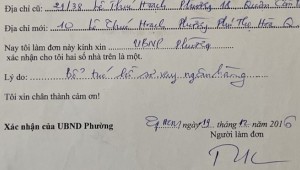 Địa chỉ cũ: 21/38 Lê Thúc Hoạch Phường
Địa chỉ mới: 10 Lê Thúc Hoạch Phường Phú Thọ Hoà Q
Nay tôi làm đơn này kính xin UBND Phường
xác nhận cho tôi hai số nhà trên là một.
Lý do: Bổ túc hồ sơ vay ngân hàng
Tôi xin chân thành cảm ơn!
ngày 19 tháng 12 năm 2016
Xác nhận của UBND Phường
Người làm đơn